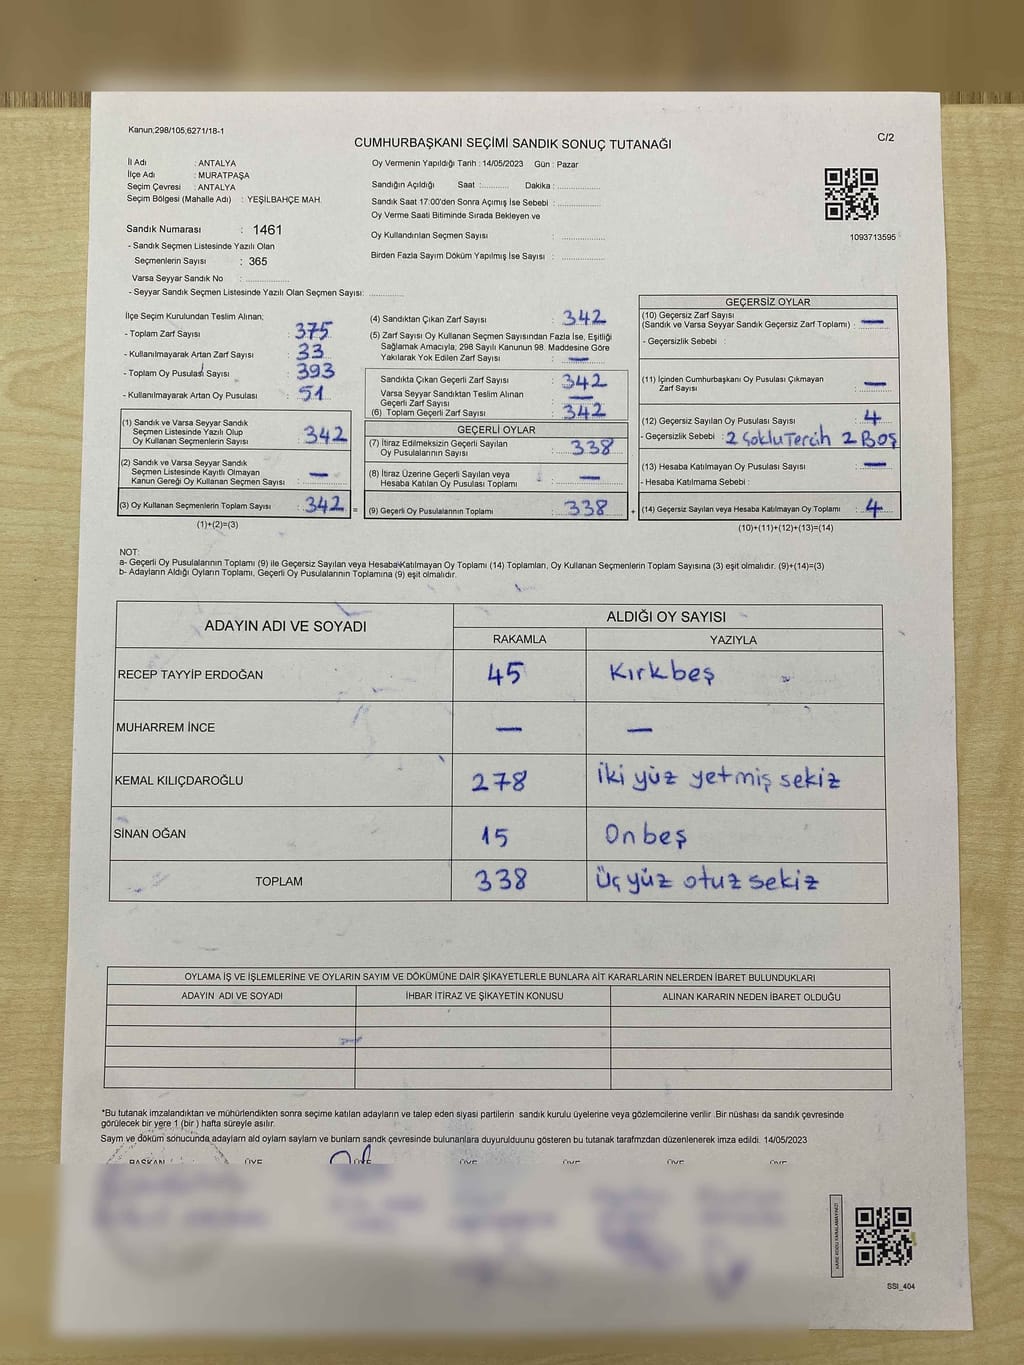 Kanun;298/105,6271/18-1
C/2
CUMHURBAŞKANI SEÇİMİ SANDIK SONUÇ TUTANAĞI
İl Adı : ANTALYA
İlçe Adı : MURATPAŞA
Seçim Çevresi : ANTALYA
Seçim Bölgesi (Mahalle Adı) : YEŞİLBAHÇE MAH.
Sandık Numarası : 1461
- Sandık Seçmen Listesinde Yazılı Olan
Seçmenlerin Sayısı : 365
Varsa Seyyar Sandık No :
- Seyyar Sandık Seçmen Listesinde Yazılı Olan Seçmen Sayısı:
Oy Vermenin Yapıldığı Tarih : 14/05/2023 Gün : Pazar
Sandığın Açıldığı Saat : Dakika :
Sandık Saat 17:00'den Sonra Açımış İse Sebebi :
Oy Verme Saati Bitiminde Sırada Bekleyen ve
Oy Kullandırılan Seçmen Sayısı :
Birden Fazla Sayım Döküm Yapılmış İse Sayısı :
1093713595
İlçe Seçim Kurulundan Teslim Alınan;
- Toplam Zarf Sayısı : 375
- Kullanılmayarak Artan Zarf Sayısı : 33
- Toplam Oy Pusulası Sayısı : 393
- Kullanılmayarak Artan Oy Pusulası : 51
(1) Sandık ve Varsa Seyyar Sandık
Seçmen Listesinde Yazılı Olup
Oy Kullanan Seçmenlerin Sayısı : 342
(2) Sandık ve Varsa Seyyar Sandık
Seçmen Listesinde Kayıtlı Olmayan
Kanun Gereği Oy Kullanan Seçmen Sayısı : —
(3) Oy Kullanan Seçmenlerin Toplam Sayısı : 342 =
(1)+(2)=(3)
(4) Sandıktan Çıkan Zarf Sayısı : 342
(5) Zarf Sayısı Oy Kullanan Seçmen Sayısından Fazla İse, Eşitliği
Sağlamak Amacıyla, 298 Sayılı Kanunun 98. Maddesine Göre
Yakılarak Yok Edilen Zarf Sayısı : —
Sandıkta Çıkan Geçerli Zarf Sayısı : 342
Varsa Seyyar Sandıktan Teslim Alınan
Geçerli Zarf Sayısı : —
(6) Toplam Geçerli Zarf Sayısı : 342
GEÇERLİ OYLAR
(7) İtiraz Edilmeksizin Geçerli Sayılan
Oy Pusulalarının Sayısı : 338
(8) İtiraz Üzerine Geçerli Sayılan veya
Hesaba Katılan Oy Pusulası Toplamı : —
(9) Geçerli Oy Pusulalarının Toplamı : 338 +
GEÇERSİZ OYLAR
(10) Geçersiz Zarf Sayısı
(Sandık ve Varsa Seyyar Sandık Geçersiz Zarf Toplamı) : —
- Geçersizlik Sebebi :
(11) İçinden Cumhurbaşkanı Oy Pusulası Çıkmayan
Zarf Sayısı : —
(12) Geçersiz Sayılan Oy Pusulası Sayısı : 4
- Geçersizlik Sebebi : 2 Çoklu Tercih 2 Boş
(13) Hesaba Katılmayan Oy Pusulası Sayısı : —
- Hesaba Katılmama Sebebi :
(14) Geçersiz Sayılan veya Hesaba Katılmayan Oy Toplamı : 4
(10)+(11)+(12)+(13)=(14)
NOT:
a- Geçerli Oy Pusulalarının Toplamı (9) ile Geçersiz Sayılan veya Hesaba Katılmayan Oy Toplamı (14) Toplamları, Oy Kullanan Seçmenlerin Toplam Sayısına (3) eşit olmalıdır. (9)+(14)=(3)
b- Adayların Aldığı Oyların Toplamı, Geçerli Oy Pusulalarının Toplamına (9) eşit olmalıdır.
ADAYIN ADI VE SOYADI
ALDIĞI OY SAYISI
RAKAMLA YAZIYLA
RECEP TAYYİP ERDOĞAN 45 Kırkbeş
MUHARREM İNCE — —
KEMAL KILIÇDAROĞLU 278 iki yüz yetmiş sekiz
SİNAN OĞAN 15 Onbeş
TOPLAM 338 Üç yüz otuz sekiz
OYLAMA İŞ VE İŞLEMLERİNE VE OYLARIN SAYIM VE DÖKÜMÜNE DAİR ŞİKAYETLERLE BUNLARA AİT KARARLARIN NELERDEN İBARET BULUNDUKLARI
ADAYIN ADI VE SOYADI İHBAR İTİRAZ VE ŞİKAYETİN KONUSU ALINAN KARARIN NEDEN İBARET OLDUĞU
*Bu tutanak imzalandıktan ve mühürlendikten sonra seçime katılan adayların ve talep eden siyasi partilerin sandık kurulu üyelerine veya gözlemcilerine verilir .Bir nüshası da sandık çevresinde
görülecek bir yere 1 (bir ) hafta süreyle asılır.
Saym ve döküm sonucunda adaylarn ald oylarn saylarn ve bunlarn sandk çevresinde bulunanlara duyurulduunu gösteren bu tutanak tarafmzdan düzenlenerek imza edildi. 14/05/2023
BAŞKAN ÜYE ÜYE ÜYE ÜYE ÜYE ÜYE
SSI_404